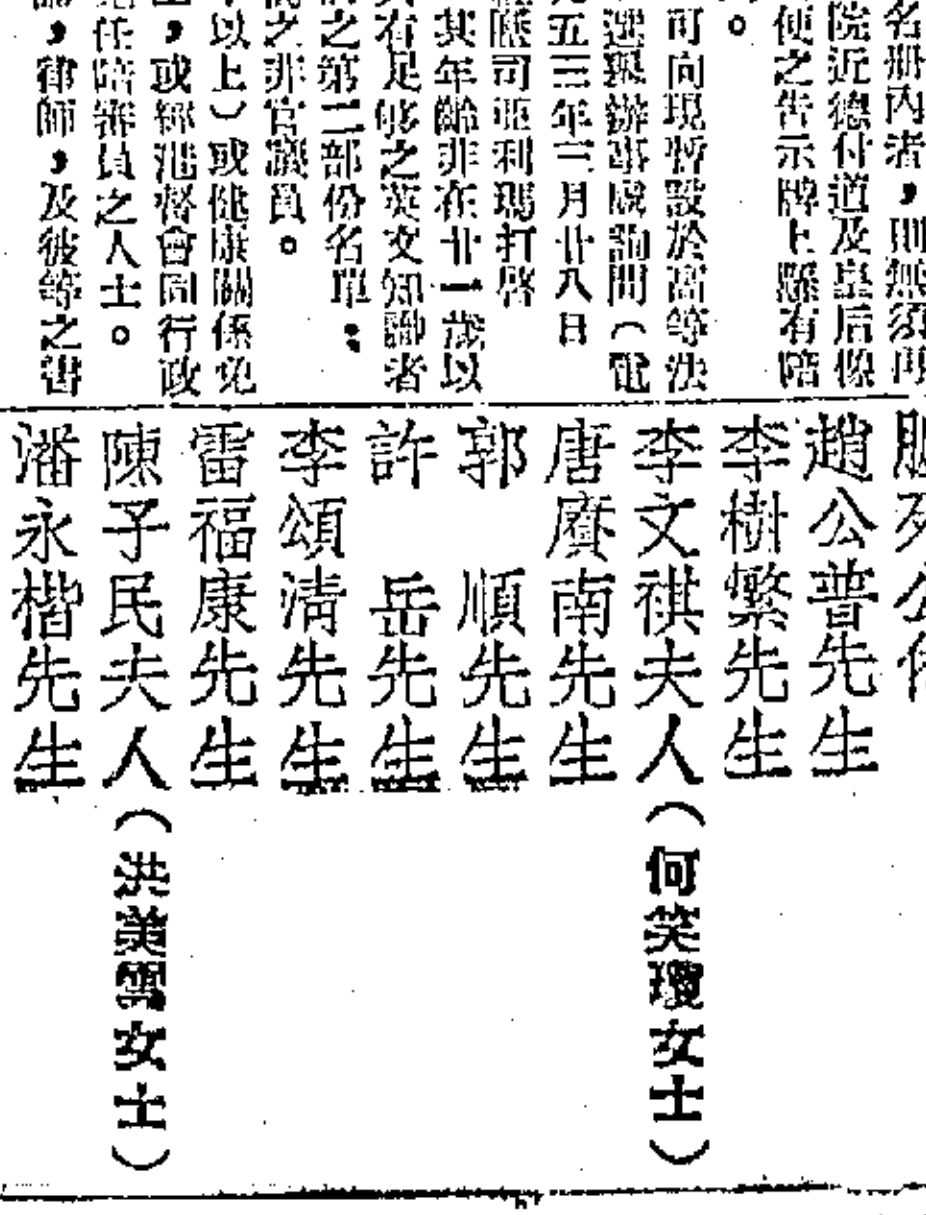 名册內者，則無須再
院近德付道及皇后像
使之告示牌上懸有陪
。
可向現暫設於高等法
選舉辦事處詢問（電
五三年三月廿八日
司亞利瑪打啓
其年齡非在廿一歲以
有足够之英文知識者
之第二部份名單：
之非官議員。
以上）或健康關係免
，或經港督會同行政
任陪審員之人士。
，律師，及彼等之書
列公
趙公普先生
李樹繁先生
李文祺夫人（何笑瓊女士）
唐賡南先生
郭順先生
許岳先生
李頌清先生
雷福康先生
陳子民夫人（洪美雲女士）
潘永楷先生